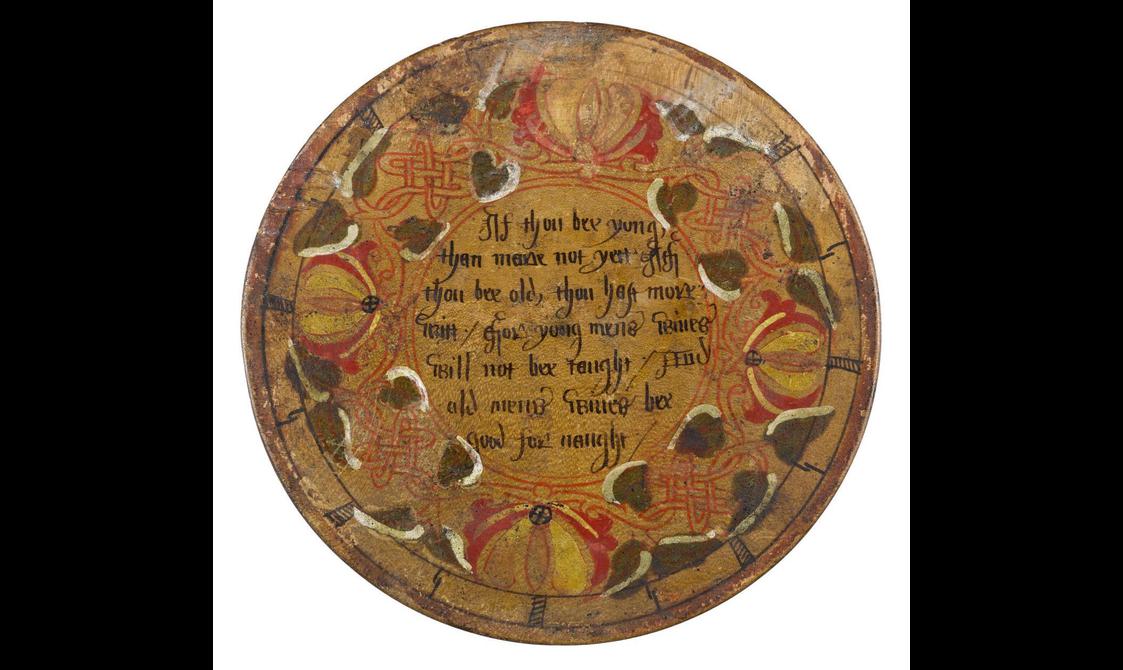 If thou bee yong,
than marie not yett / If
thou bee old, thou hast more
witt / For yong mens wiues
will not bee taught / And
old mens wiues bee
good for naught /